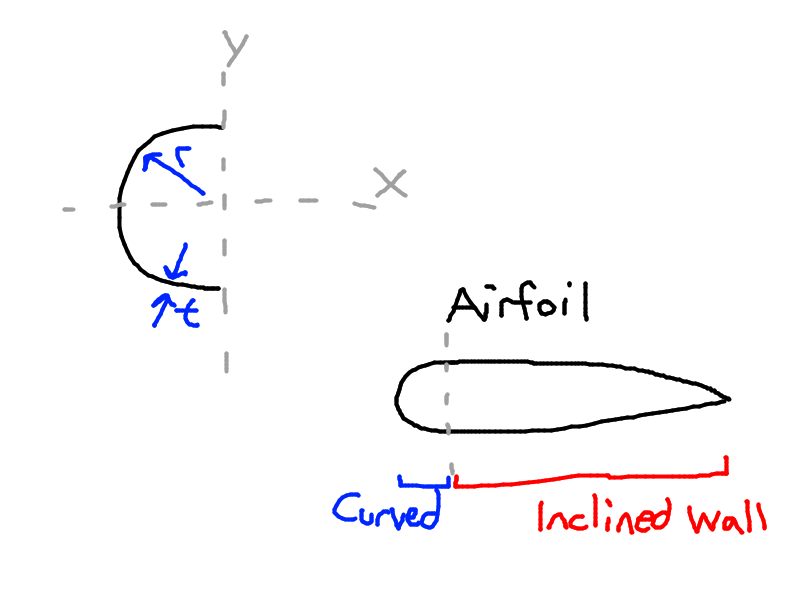 y
r
x
t
Airfoil
Curved
Inclined Wall